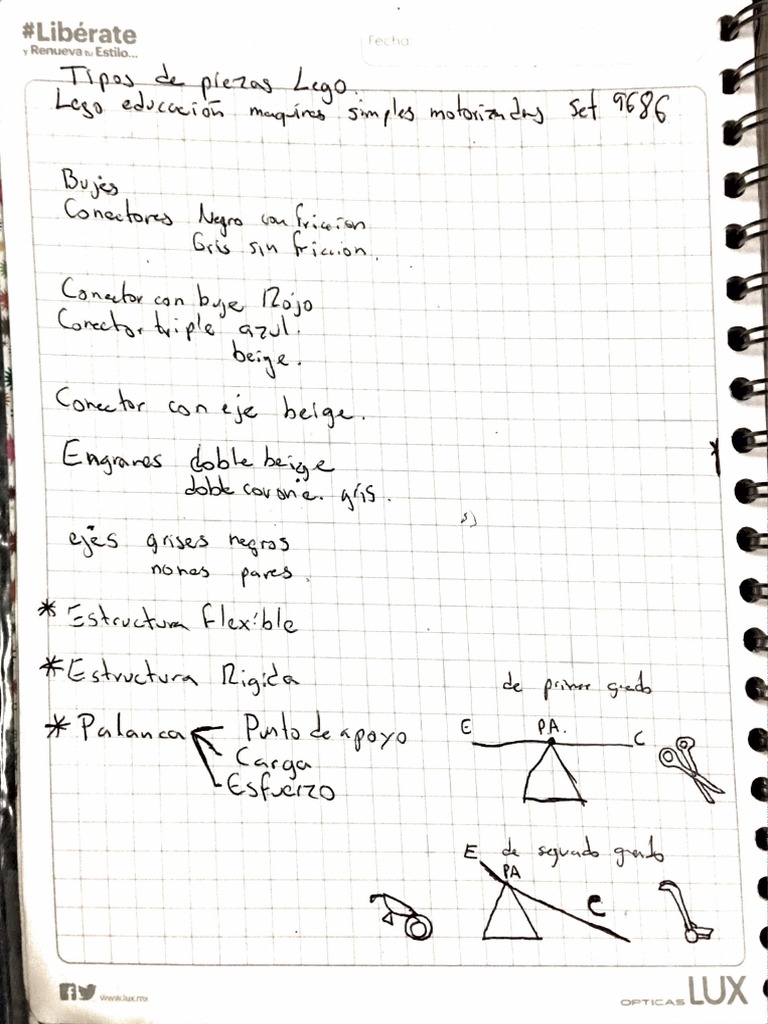 #Libérate
y Renueva tu Estilo...
Fecha:
Tipos de piezas Lego.
Lego educación maquinas simples motorizadas set 9686
Bujes
Conectores Negro con friccion
Gris sin friccion.
Conector con buje Rojo
Conector triple azul.
beige.
Conector con eje beige.
Engranes doble beige
doble corona. gris.
ejes grises negros
nones pares.
* Estructura flexible
* Estructura Rigida
* Palanca Punto de apoyo
Carga
Esfuerzo
de primer grado
E P.A. C
E de segundo grado
PA
C
www.lux.mx
OPTICAS LUX